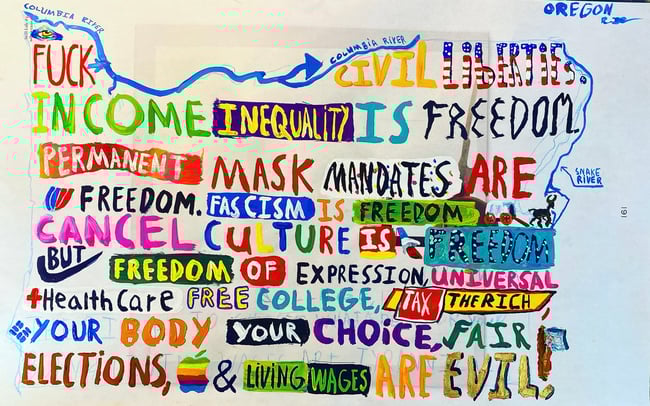 COLUMBIA RIVER
OREGON
COLUMBIA RIVER
FUCK CIVIL LIBERTIES.
INCOME INEQUALITY IS FREEDOM.
PERMANENT MASK MANDATES ARE
SNAKE RIVER
FREEDOM. FASCISM IS FREEDOM
191
CANCEL CULTURE IS FREEDOM
BUT FREEDOM OF EXPRESSION, UNIVERSAL
HealthCare FREE COLLEGE, TAX THE RICH,
YOUR BODY YOUR CHOICE, FAIR
ELECTIONS, & LIVING WAGES ARE EVIL!